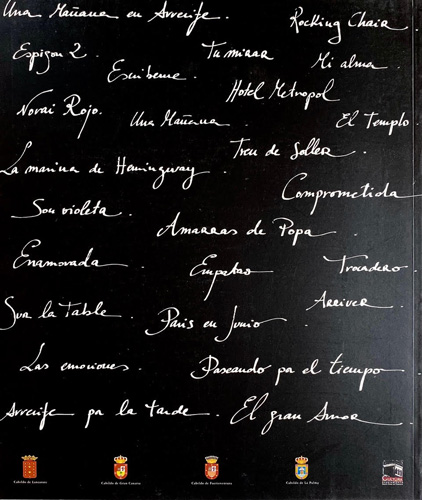 Una Mañana en Arrecife.
Rocking Chair.
Espigon 2.
Tu mirar
Escribeme.
Mi alma.
Hotel Metropol
Norai Rojo.
Una Mañana.
El Templo.
Tren de Soller.
La marina de Hemingway.
Comprometida
Son violeta.
Amarras de Popa.
Enamorada.
Empatao
Trocadero.
Arriver.
Sur la Table.
Paris en Junio.
Las emociones.
Paseando por el tiempo
Arrecife por la tarde.
El gran Amor.
Cabildo de Lanzarote
Cabildo de Gran Canaria
Cabildo de Fuerteventura
Cabildo de La Palma